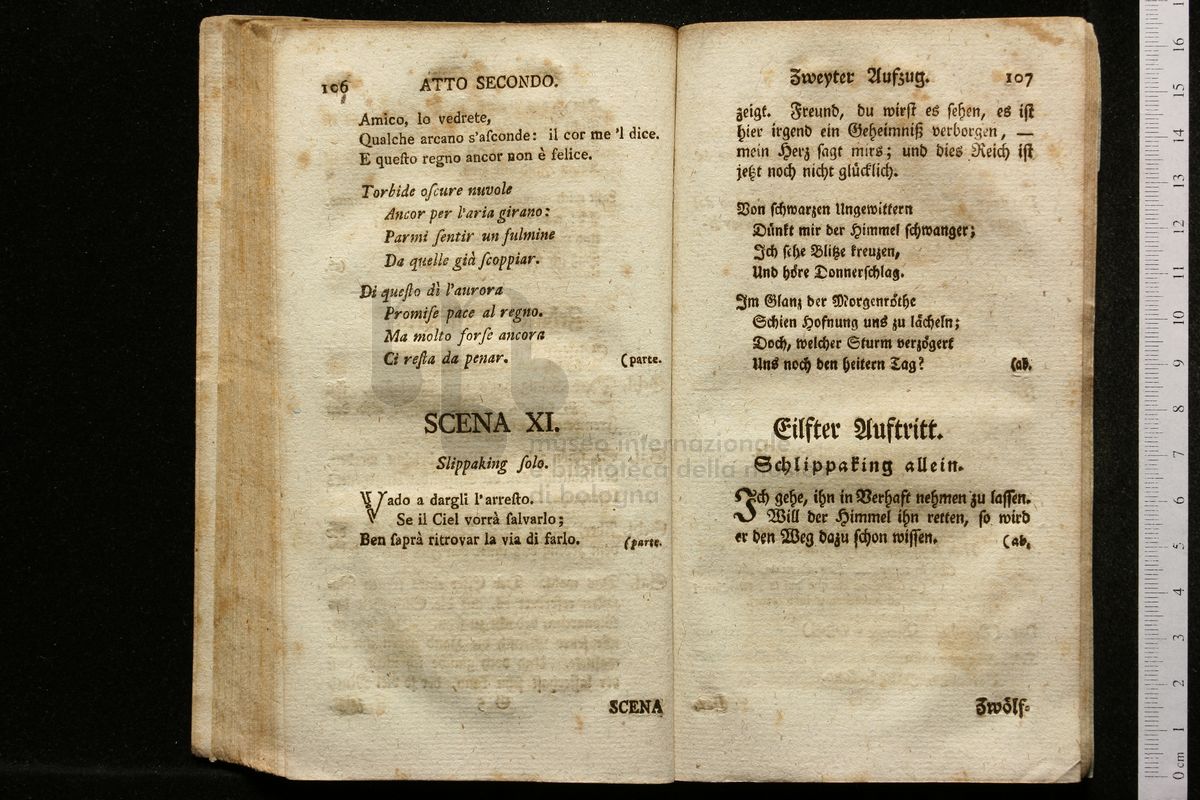 106 ATTO SECONDO.
Amico, lo vedrete,
Qualche arcano s'aſconde: il cor me 'l dice.
E queſto regno ancor non è felice.
Torbide oſcure nuvole
Ancor per l'aria girano:
Parmi ſentir un fulmine
Da quelle già ſcoppiar.
Di queſto dì l'aurora
Promiſe pace al regno.
Ma molto forſe ancora
Ci reſta da penar. (parte.
SCENA XI.
Slippaking ſolo.
Vado a dargli l'arreſto.
Se il Ciel vorrà ſalvarlo;
Ben ſaprà ritrovar la via di farlo. (parte.
SCENA
Zweyter Aufzug. 107
zeigt. Freund, du wirſt es ſehen, es iſt
hier irgend ein Geheimniß verborgen, —
mein Herz ſagt mirs; und dies Reich iſt
jetzt noch nicht glücklich.
Von ſchwarzen Ungewittern
Dünkt mir der Himmel ſchwanger;
Ich ſehe Blitze kreuzen,
Und höre Donnerſchlag.
Im Glanz der Morgenröthe
Schien Hofnung uns zu lächeln;
Doch, welcher Sturm verzögert
Uns noch den heitern Tag? (ab.
Eilfter Auftritt.
Schlippaking allein.
Ich gehe, ihn in Verhaft nehmen zu laſſen.
Will der Himmel ihn retten, ſo wird
er den Weg dazu ſchon wiſſen. (ab.
Zwölf-
museo internazionale
e biblioteca della m
di bologna
0 cm 1 2 3 4 5 6 7 8 9 10 11 12 13 14 15 16